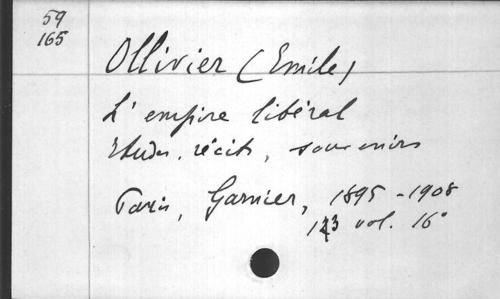 59
165
Ollivier (Emile)
L'empire libéral
Etudes, récits, souvenirs
Paris, Garnier, 1895-1908
13 vol. 16°